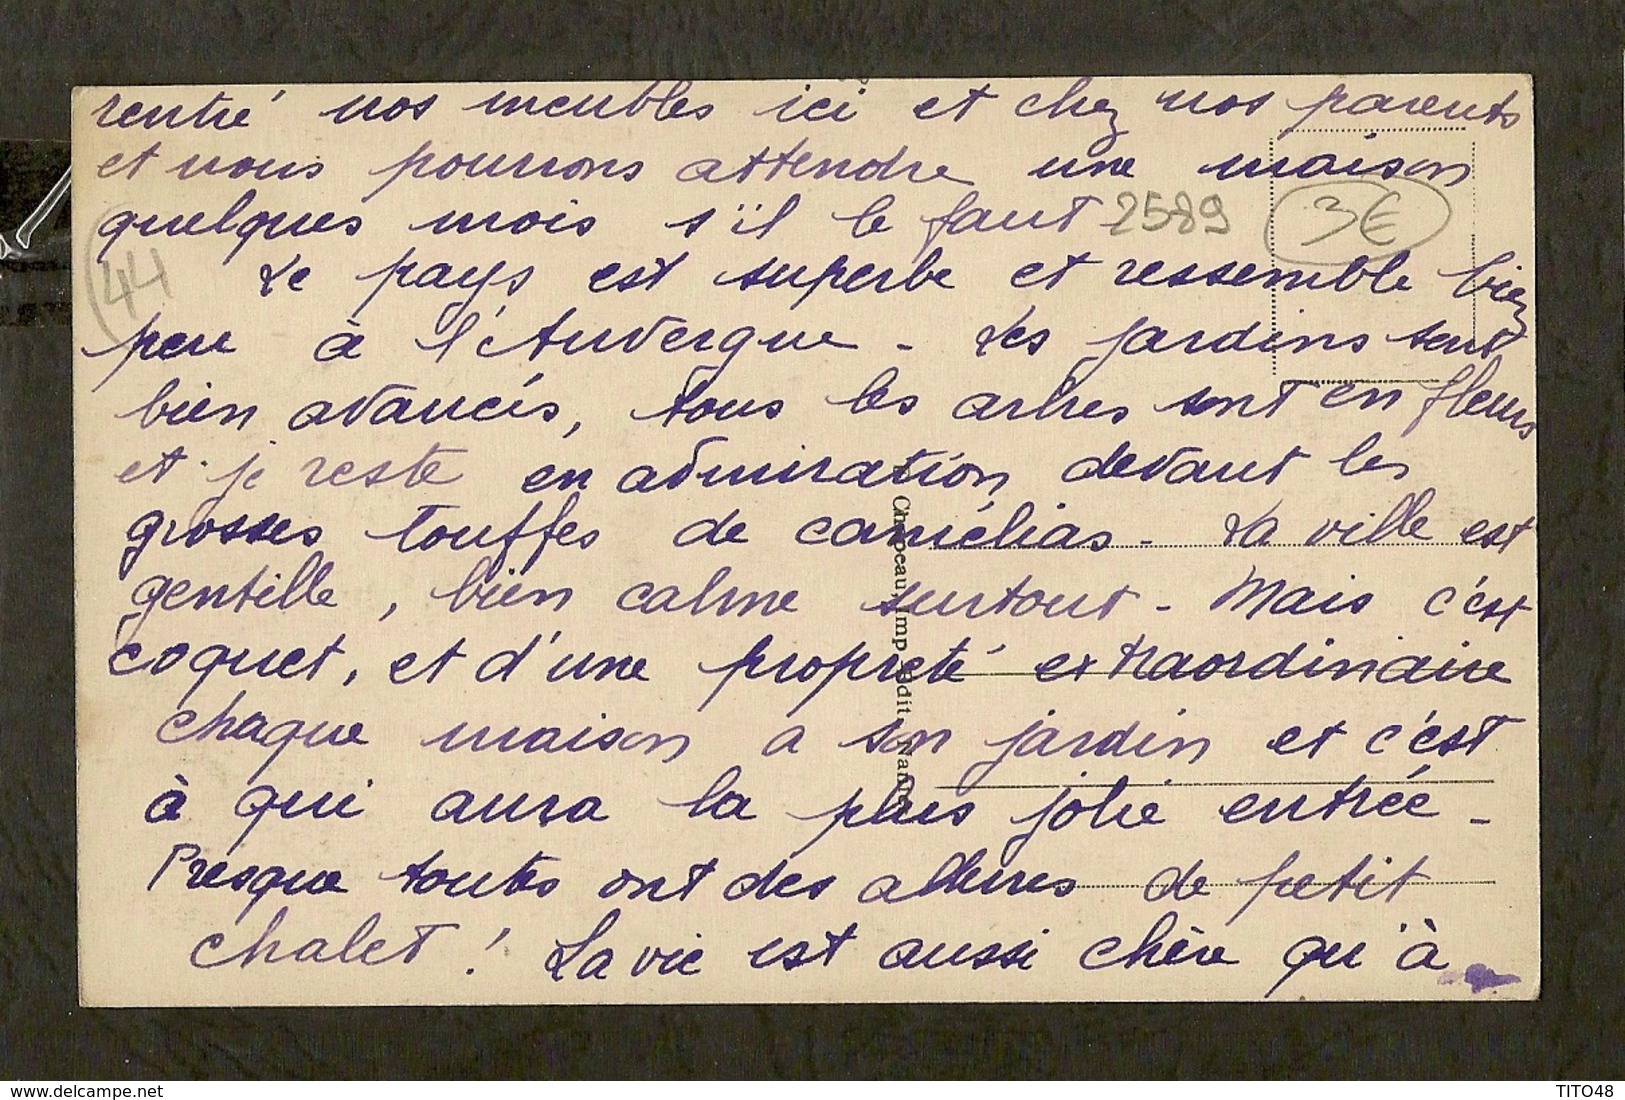 rentré nos meubles ici et chez nos parents
et nous pourrons attendre une maison
quelques mois s'il le faut 2589 3€
44
Le pays est superbe et ressemble bien
peu à l'Auvergne - Les jardins sont
bien avancés, tous les arbres sont en fleurs
et je reste en admiration devant les
grosses touffes de camélias - La ville est
gentille, bien calme surtout - Mais c'est
coquet, et d'une propreté extraordinaire
chaque maison a son jardin et c'est
à qui aura la plus jolie entrée -
Presque toutes ont des allures de petit
chalet ! La vie est aussi chère qu'à
Chapeau, Imp. Edit. Nantes
TITO48